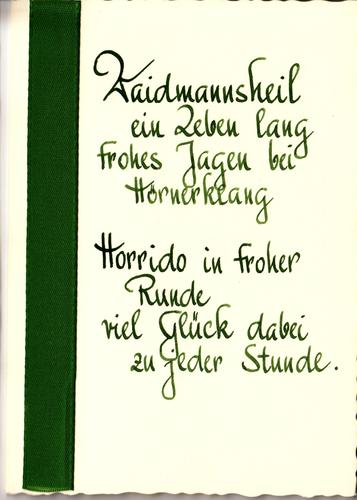 Waidmannsheil
ein Leben lang
frohes Jagen bei
Hörnerklang
Horrido in froher
Runde
viel Glück dabei
zu jeder Stunde.